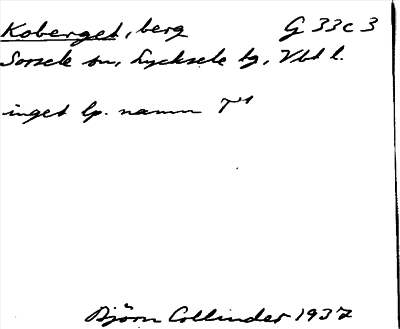 Koberget, berg G 33c3
Sorsele sn, Lycksele lg, Vbt l.
inget lp. namn T¹
Björn Collinder 1937